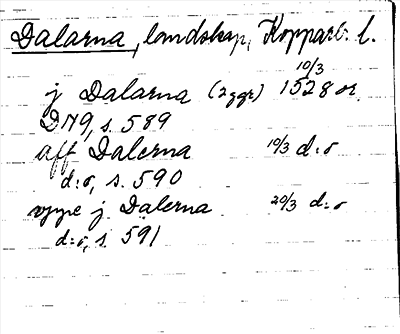 Dalarna, landskap, Kopparb. l.
10/3
j Dalarna (2 ggr) 1528 or.
DN9, s. 589
aff Dalerna 10/3 d:o
d:o, s. 590
vppe j Dalerna 20/3 d:o
d:o, s. 591